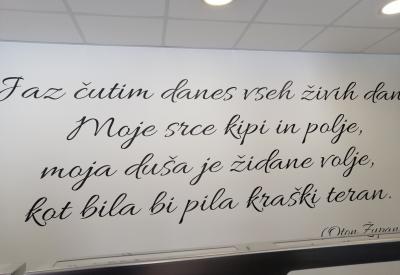 Jaz čutim danes vseh živih dan
Moje srce kipi in polje,
moja duša je židane volje,
kot bila bi pila kraški teran.
(Oton Župan